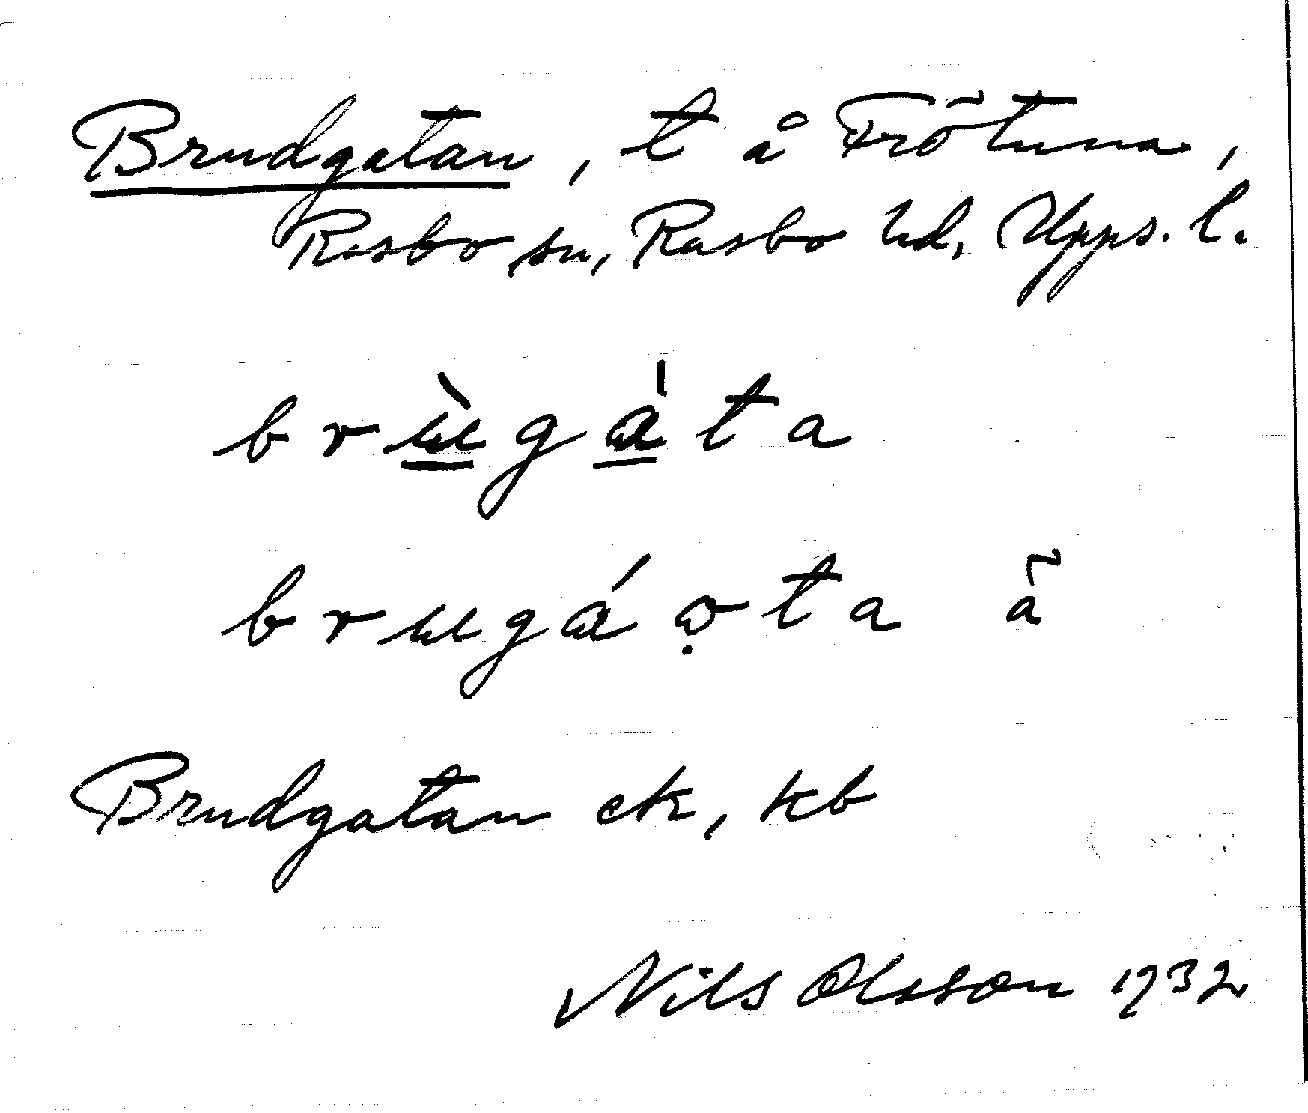 Brudgatan, t å Frötuna,
Rasbo sn, Rasbo hd, Upps. l.
brɯ̀gɑ̍ta
brɯgɑ́ọta ã
Brudgatan ek, kb
Nils Olsson 1932